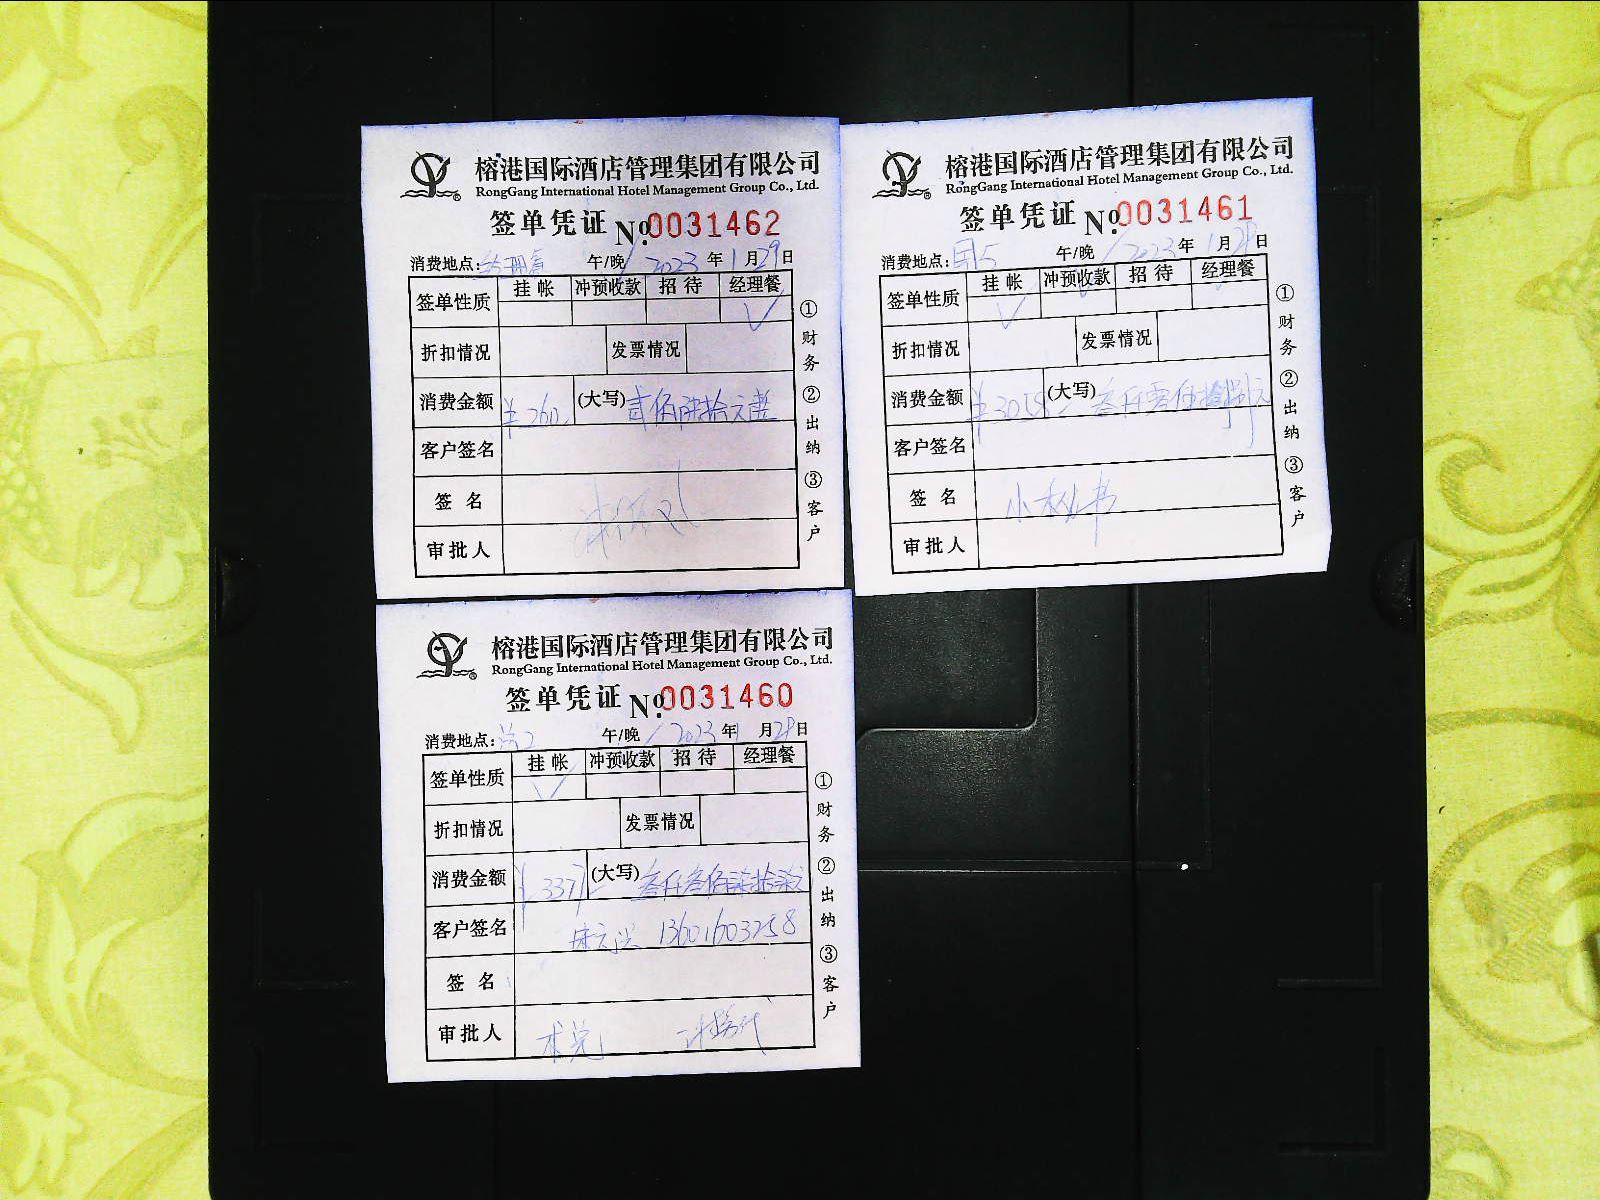 榕港国际酒店管理集团有限公司
RongGang International Hotel Management Group Co., Ltd.
签单凭证 № 0031462
消费地点: 午/晚 2023 年 1 月 29 日
签单性质 挂帐 冲预收款 招待 经理餐
√
折扣情况 发票情况
消费金额 ¥260 (大写) 贰佰陆拾元整
客户签名
签名
审批人
①财务 ②出纳 ③客户
榕港国际酒店管理集团有限公司
RongGang International Hotel Management Group Co., Ltd.
签单凭证 № 0031461
消费地点: 午/晚 2023 年 1 月 29 日
签单性质 挂帐 冲预收款 招待 经理餐
√
折扣情况 发票情况
消费金额 ¥3058 (大写) 叁仟零伍拾捌元
客户签名
签名 小秘书
审批人
①财务 ②出纳 ③客户
榕港国际酒店管理集团有限公司
RongGang International Hotel Management Group Co., Ltd.
签单凭证 № 0031460
消费地点: 午/晚 2023 年 1 月 29 日
签单性质 挂帐 冲预收款 招待 经理餐
√
折扣情况 发票情况
消费金额 ¥3377 (大写) 叁仟叁佰柒拾柒元
客户签名 13601603258
签名
审批人
①财务 ②出纳 ③客户